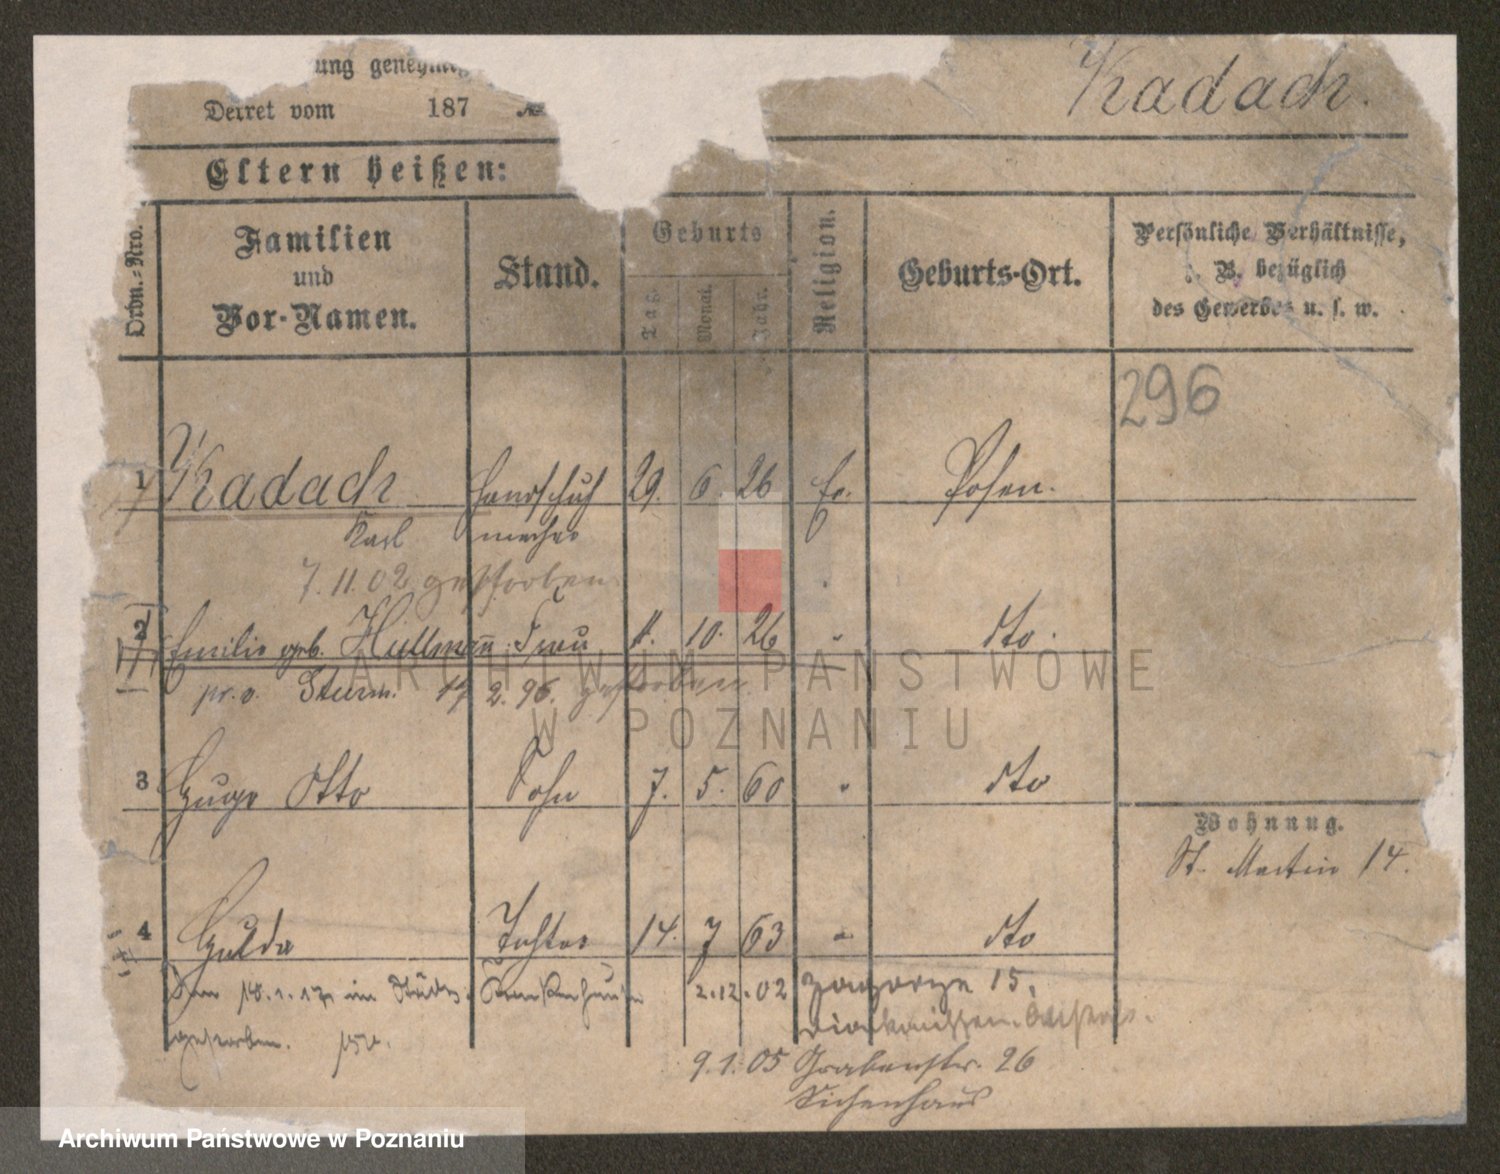 ung genehmig
Kadach.
Decret vom 187
Eltern heißen:
Ordn.-Nro.
Familien
und
Vor-Namen.
Stand.
Geburts
Tag.
Monat.
Jahr.
Religion.
Geburts-Ort.
Persönliche Verhältnisse,
z. B. bezüglich
des Gewerbes u. s. w.
296
1 Kadach Handschuh 29. 6. 26 Ev. Posen.
Karl macher
7.11.02 gestorben
2 Emilie geb. Hullmañ Frau 11. 10. 26 " dto.
pr. v. Sturm. 17 2. 96. gestorben
3 Hugo Otto Sohn 7. 5. 60 " dto
Wohnung.
St. Martin 14.
4 Hulda Tochter 14. 7 63 " dto
Den 18.1.17 im Städt. Krankenhause 2.12.02 Zagorze 15,
gestorben. Diakonissen
9.1.05 Grabenstr. 26
Siechenhaus
ARCHIWUM PAŃSTWOWE
W POZNANIU
Archiwum Państwowe w Poznaniu